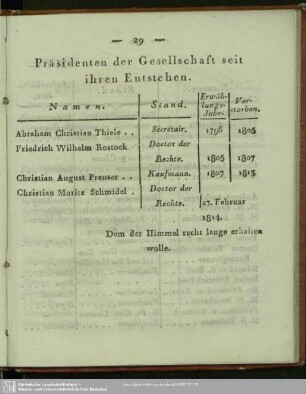 — 29 —
Präsidenten der Gesellschaft seit
ihren Entstehen.
Namen. Stand. Erwäh-lungs-Jahr. Ver-storben.
Abraham Christian Thiele . . Secretair. 1796 1805
Friedrich Wilhelm Rostock Doctor der
Rechte. 1805 1807
Christian August Preuser . . Kaufmann. 1807 1813
Christian Moritz Schmidel . Doctor der
Rechte. 27. Februar
1814.
Dem der Himmel recht lange erhalten
wolle.